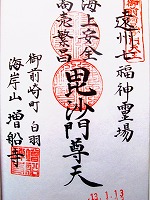 遠州七福神霊場
海上安全
商売繁昌
毘沙門尊天
御前崎町白羽
海岸山増船寺
13.1.13